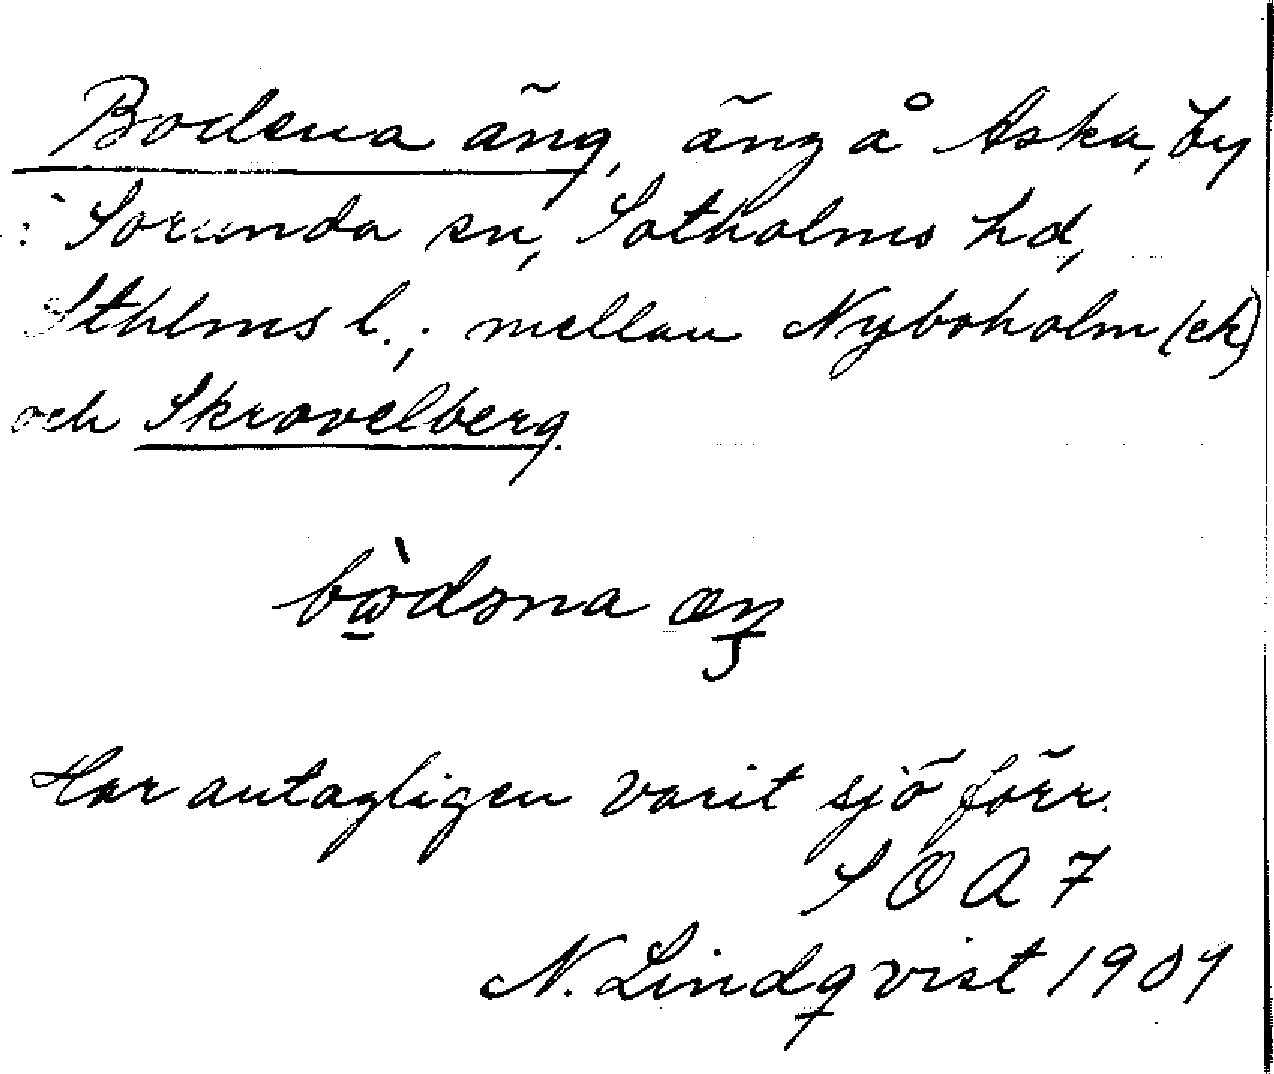 Bodena äng, äng å Aska, by
i Sorunda sn, Sotholms hd,
Sthlms l.; mellan Nyboholm (ek)
och Skravelberg.
Har antagligen varit sjö förr.
S O A 7
N. Lindqvist 1909